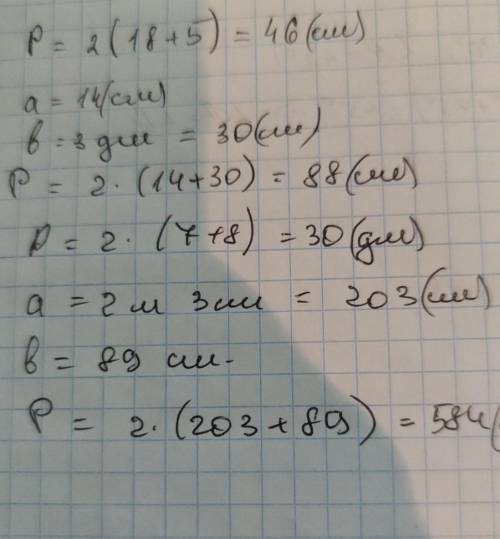 P = 2(18+5) = 46(см)
a = 14(см)
b = 3 дм = 30(см)
P = 2·(14+30) = 88(см)
P = 2·(7+8) = 30(дм)
a = 2 м 3 см = 203(см)
b = 89 см.
P = 2·(203+89) = 584(